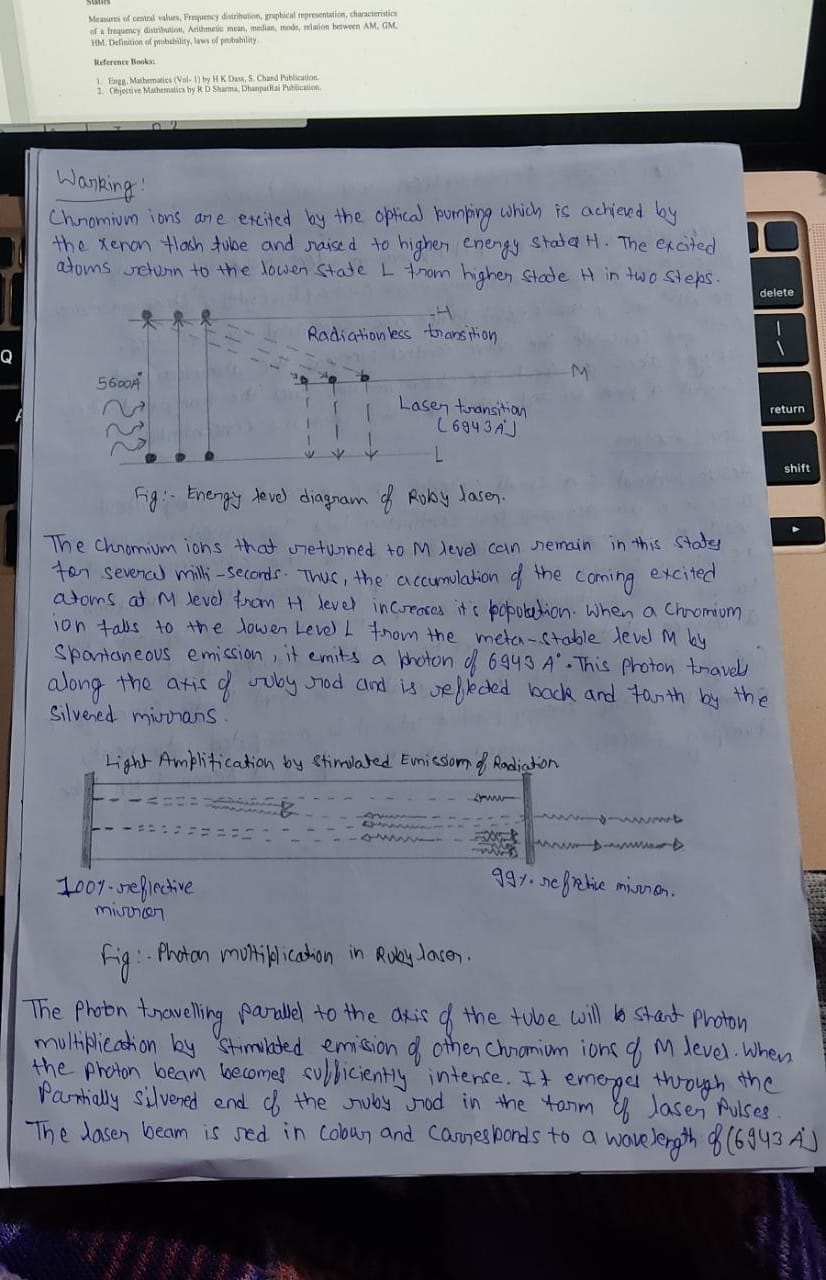 Statics
Measures of central values, Frequency distribution, graphical representation, characteristics
of a frequency distribution, Arithmetic mean, median, mode, relation between AM, GM,
HM. Definition of probability, laws of probability.
Reference Books:
1. Engg. Mathematics (Vol- 1) by H K Dass, S. Chand Publication.
2. Objective Mathematics by R D Sharma, DhanpatRai Publication.
Working!
Chromium ions are excited by the optical pumping which is achieved by
the xenon flash tube and raised to higher energy state H. The excited
atoms return to the lower state L from higher state H in two steps.
H
Radiationless transition
M
5600Å
Laser transition
(6943Å)
L
Fig:- Energy level diagram of Ruby laser.
The Chromium ions that returned to M level can remain in this state
for several milli-seconds. Thus, the accumulation of the coming excited
atoms at M level from H level increases it's population. When a Chromium
ion falls to the lower Level L from the meta-stable level M by
Spontaneous emission, it emits a photon of 6943 A°. This Photon travels
along the axis of ruby rod and is reflected back and forth by the
Silvered mirrors.
Light Amplification by Stimulated Emission of Radiation
100%-reflective
mirror
99%. mirror.
Fig:- Photon multiplication in Ruby laser.
The Photon travelling parallel to the axis of the tube will start Photon
multiplication by Stimulated emission of other chromium ions of M level. When
the Photon beam becomes sufficiently intense. It emerges through the
Partially Silvered end of the ruby rod in the form of laser Pulses.
The laser beam is red in Colour and Corresponds to a wavelength of (6943 Å)
Q
delete
|
\
return
shift